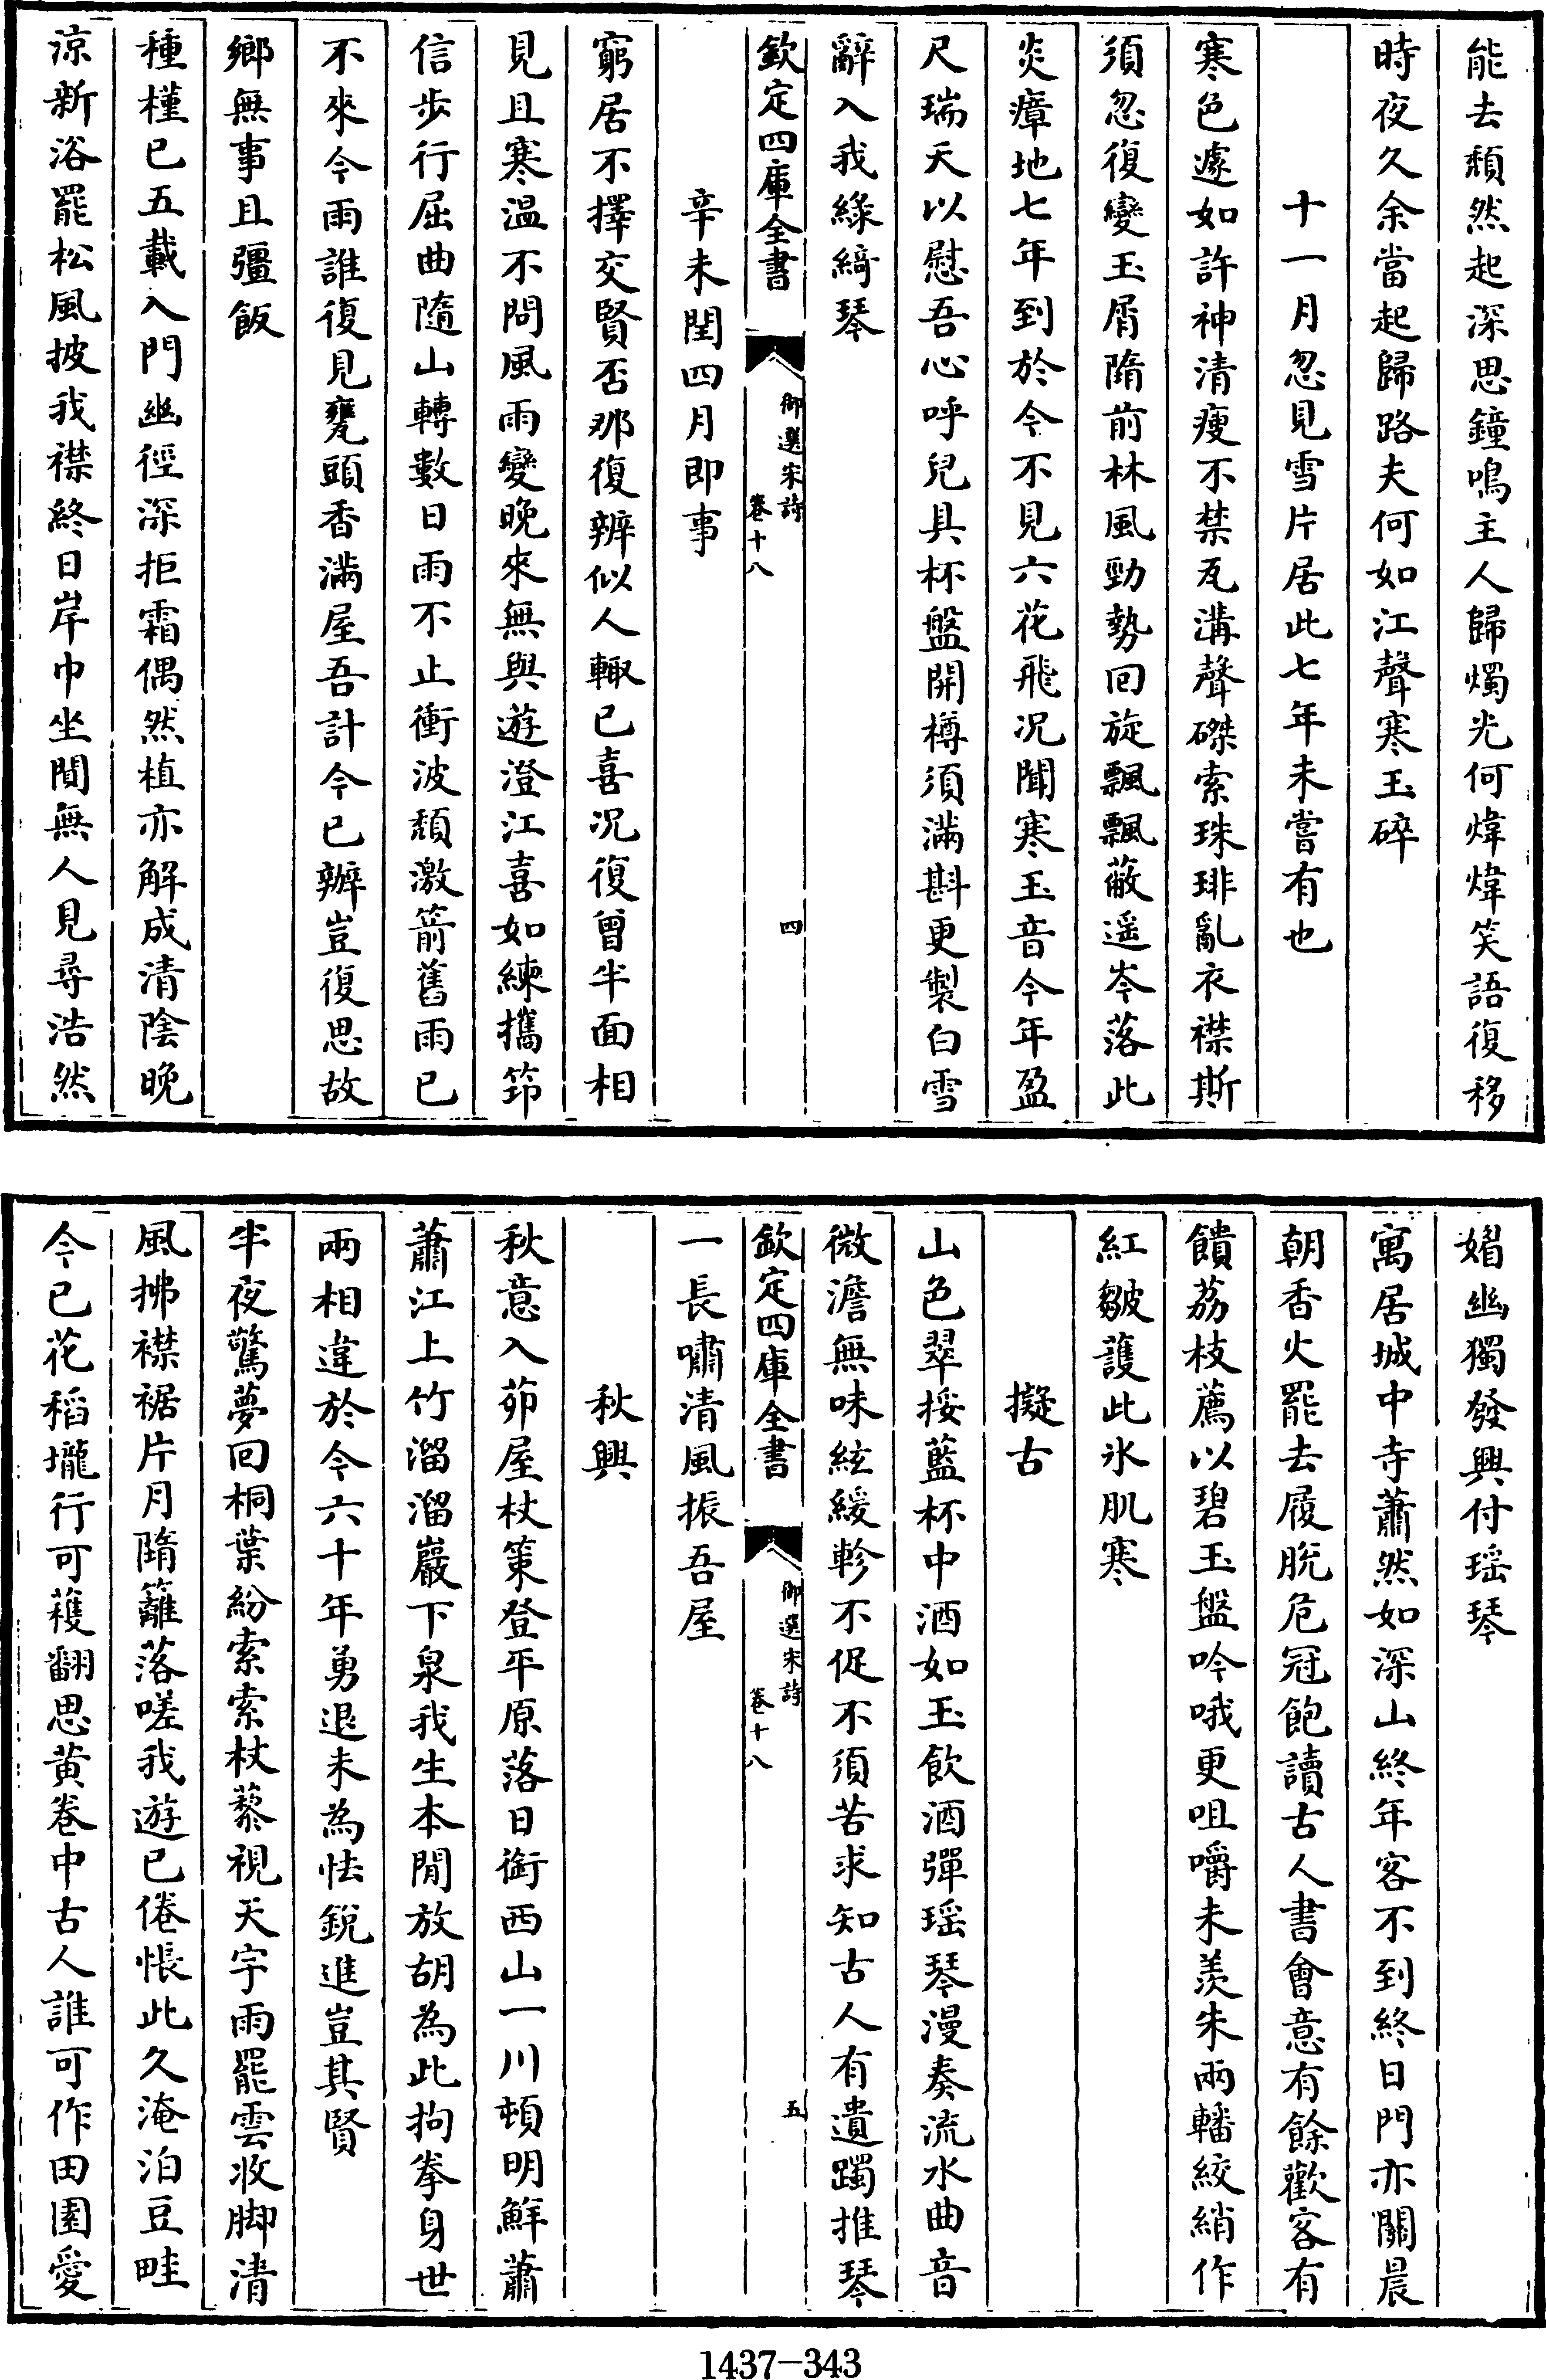 能去頽然起深思鐘鳴主人歸燭光何煒煒笑語復移
時夜久余當起歸路夫何如江聲寒玉碎
十一月忽見雪片居此七年未嘗有也
寒色遽如許神清瘦不禁瓦溝聲磔索珠琲亂衣襟斯
須忽復變玉屑隋前林風勁勢回旋飄飄蔽遥岑落此
炎瘴地七年到於今不見六花飛况聞寒玉音今年盈
尺瑞天以慰吾心呼兒具杯盤開樽須滿斟更製白雪
辭入我綠綺琴
欽定四庫全書
御選宋詩
卷十八
四
辛未閏四月即事
窮居不擇交賢否那復辨似人輙已喜况復曾半面相
見且寒温不問風雨變晚來無與遊澄江喜如練攜筇
信步行屈曲隨山轉數日雨不止衝波頽激箭舊雨已
不來今雨誰復見甕頭香滿屋吾計今已辦豈復思故
鄉無事且彊飯
種槿已五載入門幽徑深拒霜偶然植亦解成清陰晚
涼新浴罷松風披我襟終日岸巾坐閒無人見尋浩然
媚幽獨發興付瑶琴
寓居城中寺蕭然如深山終年客不到終日門亦關晨
朝香火罷去履脱危冠飽讀古人書會意有餘歡客有
饋荔枝薦以碧玉盤吟哦更咀嚼未羨朱兩轓絞綃作
紅皺護此氷肌寒
擬古
山色翠挼藍杯中酒如玉飲酒彈瑶琴漫奏流水曲音
微澹無味絃緩軫不促不須苦求知古人有遺躅推琴
欽定四庫全書
御選宋詩
卷十八
五
一長嘯清風振吾屋
秋興
秋意入茆屋杖策登平原落日銜西山一川頓明鮮蕭
蕭江上竹溜溜巖下泉我生本閒放胡為此拘拳身世
兩相違於今六十年勇退未為怯銳進豈其賢
半夜驚夢回桐葉紛索索杖藜視天宇雨罷雲收脚清
風拂襟裾片月隋籬落嗟我遊已倦悵此久淹泊豆畦
今已花稻壠行可穫翻思黄卷中古人誰可作田園愛
1437-343